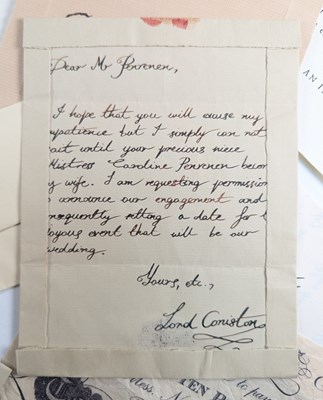 Dear Mr Penrenen,
I hope that you will excuse my
mpatience but I simply can not
ait until your precious niece
Mistress Caroline Penrenen becom
y wife. I am requesting permission
o announce our engagement and
nsequently setting a date for t
oyous event that will be our
wedding.
Yours, etc.,
Lord Coniston
AN I
TEN P
to pay